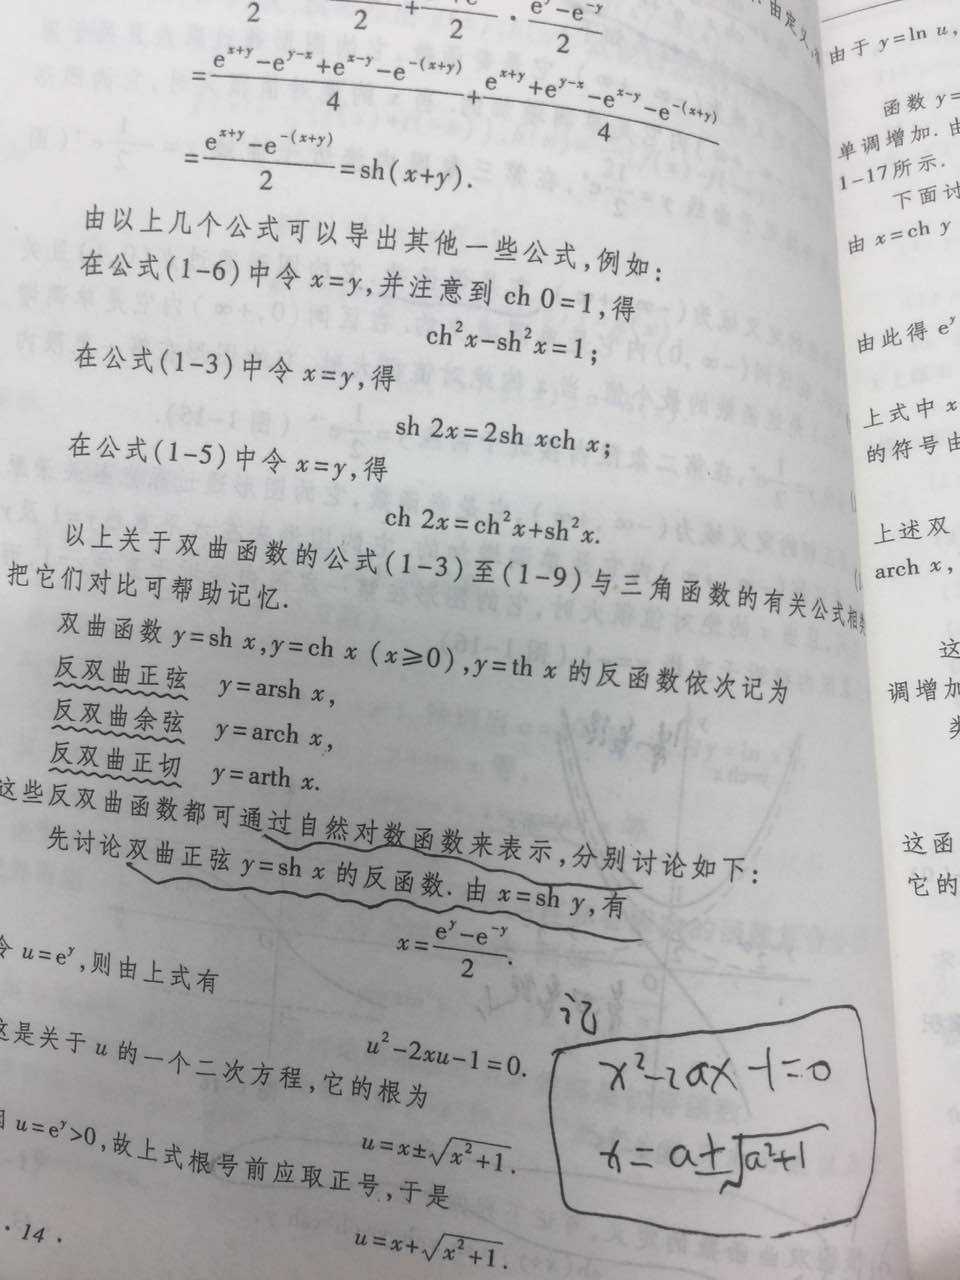 2 2 + · e^y−e^{−y} 2
= (e^{x+y}−e^{y−x}+e^{x−y}−e^{−(x+y)})/4 + (e^{x+y}+e^{y−x}−e^{x−y}−e^{−(x+y)})/4
= (e^{x+y}−e^{−(x+y)})/2 = sh(x+y).
由以上几个公式可以导出其他一些公式,例如:
在公式(1-6)中令 x=y,并注意到 ch 0=1,得
ch²x−sh²x=1;
在公式(1-3)中令 x=y,得
sh 2x=2sh xch x;
在公式(1-5)中令 x=y,得
ch 2x=ch²x+sh²x.
以上关于双曲函数的公式(1-3)至(1-9)与三角函数的有关公式相类
把它们对比可帮助记忆.
双曲函数 y=sh x,y=ch x (x≥0),y=th x 的反函数依次记为
反双曲正弦 y=arsh x,
反双曲余弦 y=arch x,
反双曲正切 y=arth x.
这些反双曲函数都可通过自然对数函数来表示,分别讨论如下:
先讨论双曲正弦 y=sh x 的反函数. 由 x=sh y,有
x=(e^y−e^{−y})/2.
令 u=e^y,则由上式有
u²−2xu−1=0.
这是关于 u 的一个二次方程,它的根为
u=x±√(x²+1).
因 u=e^y>0,故上式根号前应取正号,于是
u=x+√(x²+1).
· 14 ·
记
x²−2ax−1=0
x=a±√(a²+1)
由于 y=ln u,
函数 y=
单调增加. 由
1-17所示.
下面讨
由 x=ch y
由此得 e^y
上式中 x
的符号由
上述双
arch x,
这
调增加
类
这函
它的